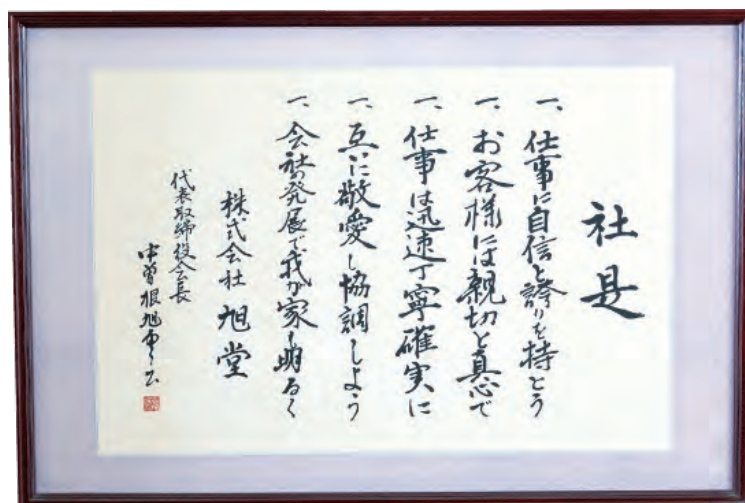 社是
一、仕事に自信と誇りを持とう
一、お客様には親切と真心で
一、仕事は迅速丁寧確実に
一、互いに敬愛し協調しよう
一、会社の発展で我が家も明るく
株式会社 旭堂
代表取締役会長
中曽根旭